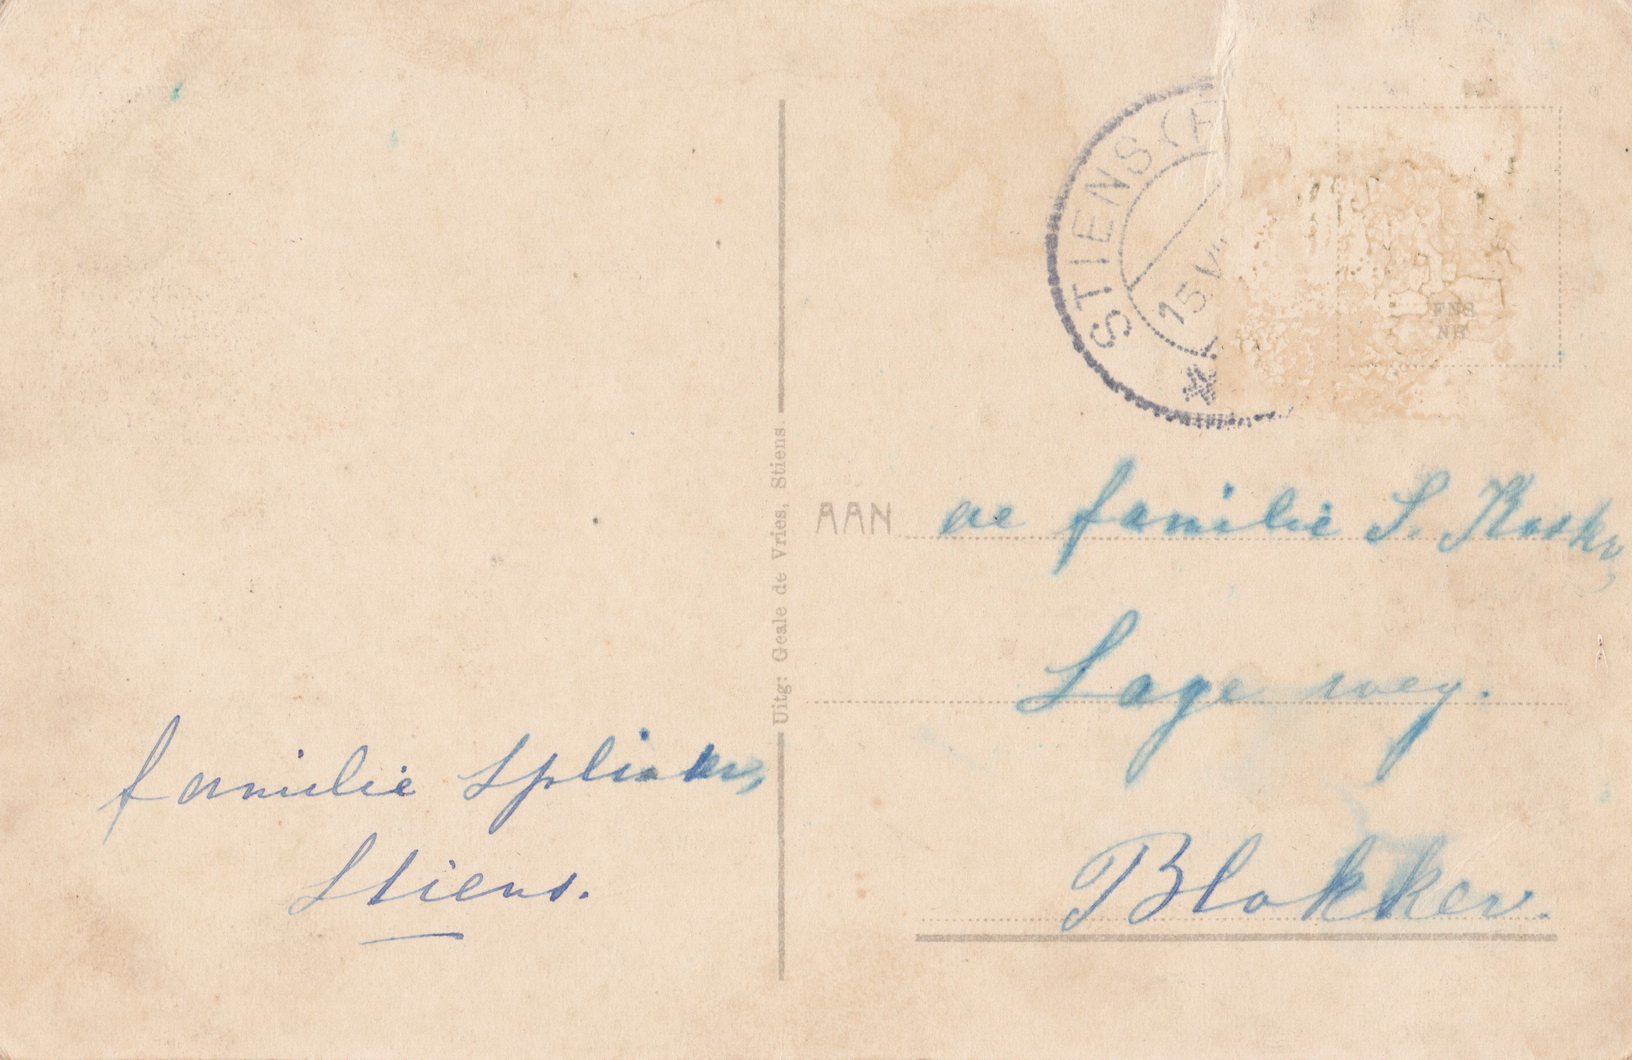 STIENS (F
15 V
FNS
NB
AAN de familie S.
Lage weg.
Blokker.
Uitg: Geale de Vries, Stiens
familie
Stiens.